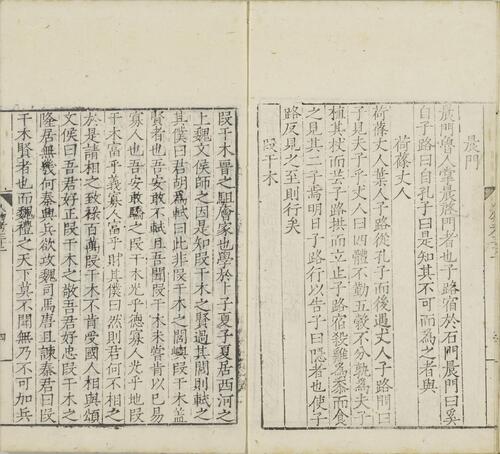 晨門
晨門魯人掌晨啟門者也子路宿於石門晨門曰奚
自子路曰自孔子曰是知其不可而為之者與
荷蓧丈人
荷蓧丈人葉人子路從孔子而後遇丈人子路問曰
子見夫子乎丈人曰四體不勤五穀不分孰為夫子
植其杖而芸子路拱而立止子路宿殺雞為黍而食
之見其二子焉明日子路行以告子曰隱者也使子
路反見之至則行矣
段干木
段干木晉之駔儈家也學於卜子夏子夏居西河之
上魏文侯師之因是知段干木之賢過其閭則軾之
其僕曰君胡為軾曰此非段干木之閭歟段干木蓋
賢者也吾安敢不軾且吾聞段干木未嘗肯以己易
寡人也吾安敢驕之段干木光乎德寡人光乎地段
干木富乎義寡人富乎財其僕曰然則君何不相之
於是請相之致祿百萬段干木不肯受國人相與頌
文侯曰吾君好正段干木之敬吾君好忠段干木之
隆居無幾何秦興兵欲攻魏司馬唐且諫秦君曰段
干木賢者也而魏禮之天下莫不聞無乃不可加兵
四